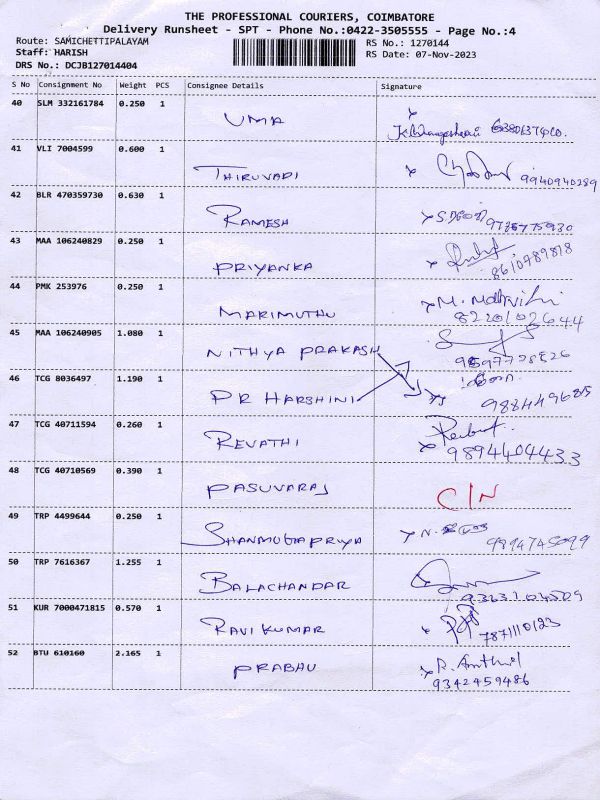 THE PROFESSIONAL COURIERS, COIMBATORE
Delivery Runsheet - SPT - Phone No.:0422-3505555 - Page No.:4
Route: SAMICHETTIPALAYAM RS No.: 1270144
Staff: HARISH RS Date: 07-Nov-2023
DRS No.: DCJB127014404
S No Consignment No Weight PCS Consignee Details Signature
40 SLM 332161784 0.250 1 UMA
41 VLI 7004599 0.600 1 THIRUVADI 9940940289
42 BLR 470359730 0.630 1 RAMESH
43 MAA 106240829 0.250 1 PRIYANKA 8610789818
44 PMK 253976 0.250 1 MARIMUTHU M. 8220102644
45 MAA 106240905 1.080 1 NITHYA PRAKASH
46 TCG 8036497 1.190 1 PR HARSHINI
47 TCG 40711594 0.260 1 REVATHI 9894404433
48 TCG 40710569 0.390 1 PASUVARAJ C/N
49 TRP 4499644 0.250 1 SHANMUGAPRIYA N. 9894745099
50 TRP 7616367 1.255 1 BALACHANDAR
51 KUR 7000471815 0.570 1 RAVI KUMAR 7871110123
52 BTU 610160 2.165 1 PRABHU
9342459486